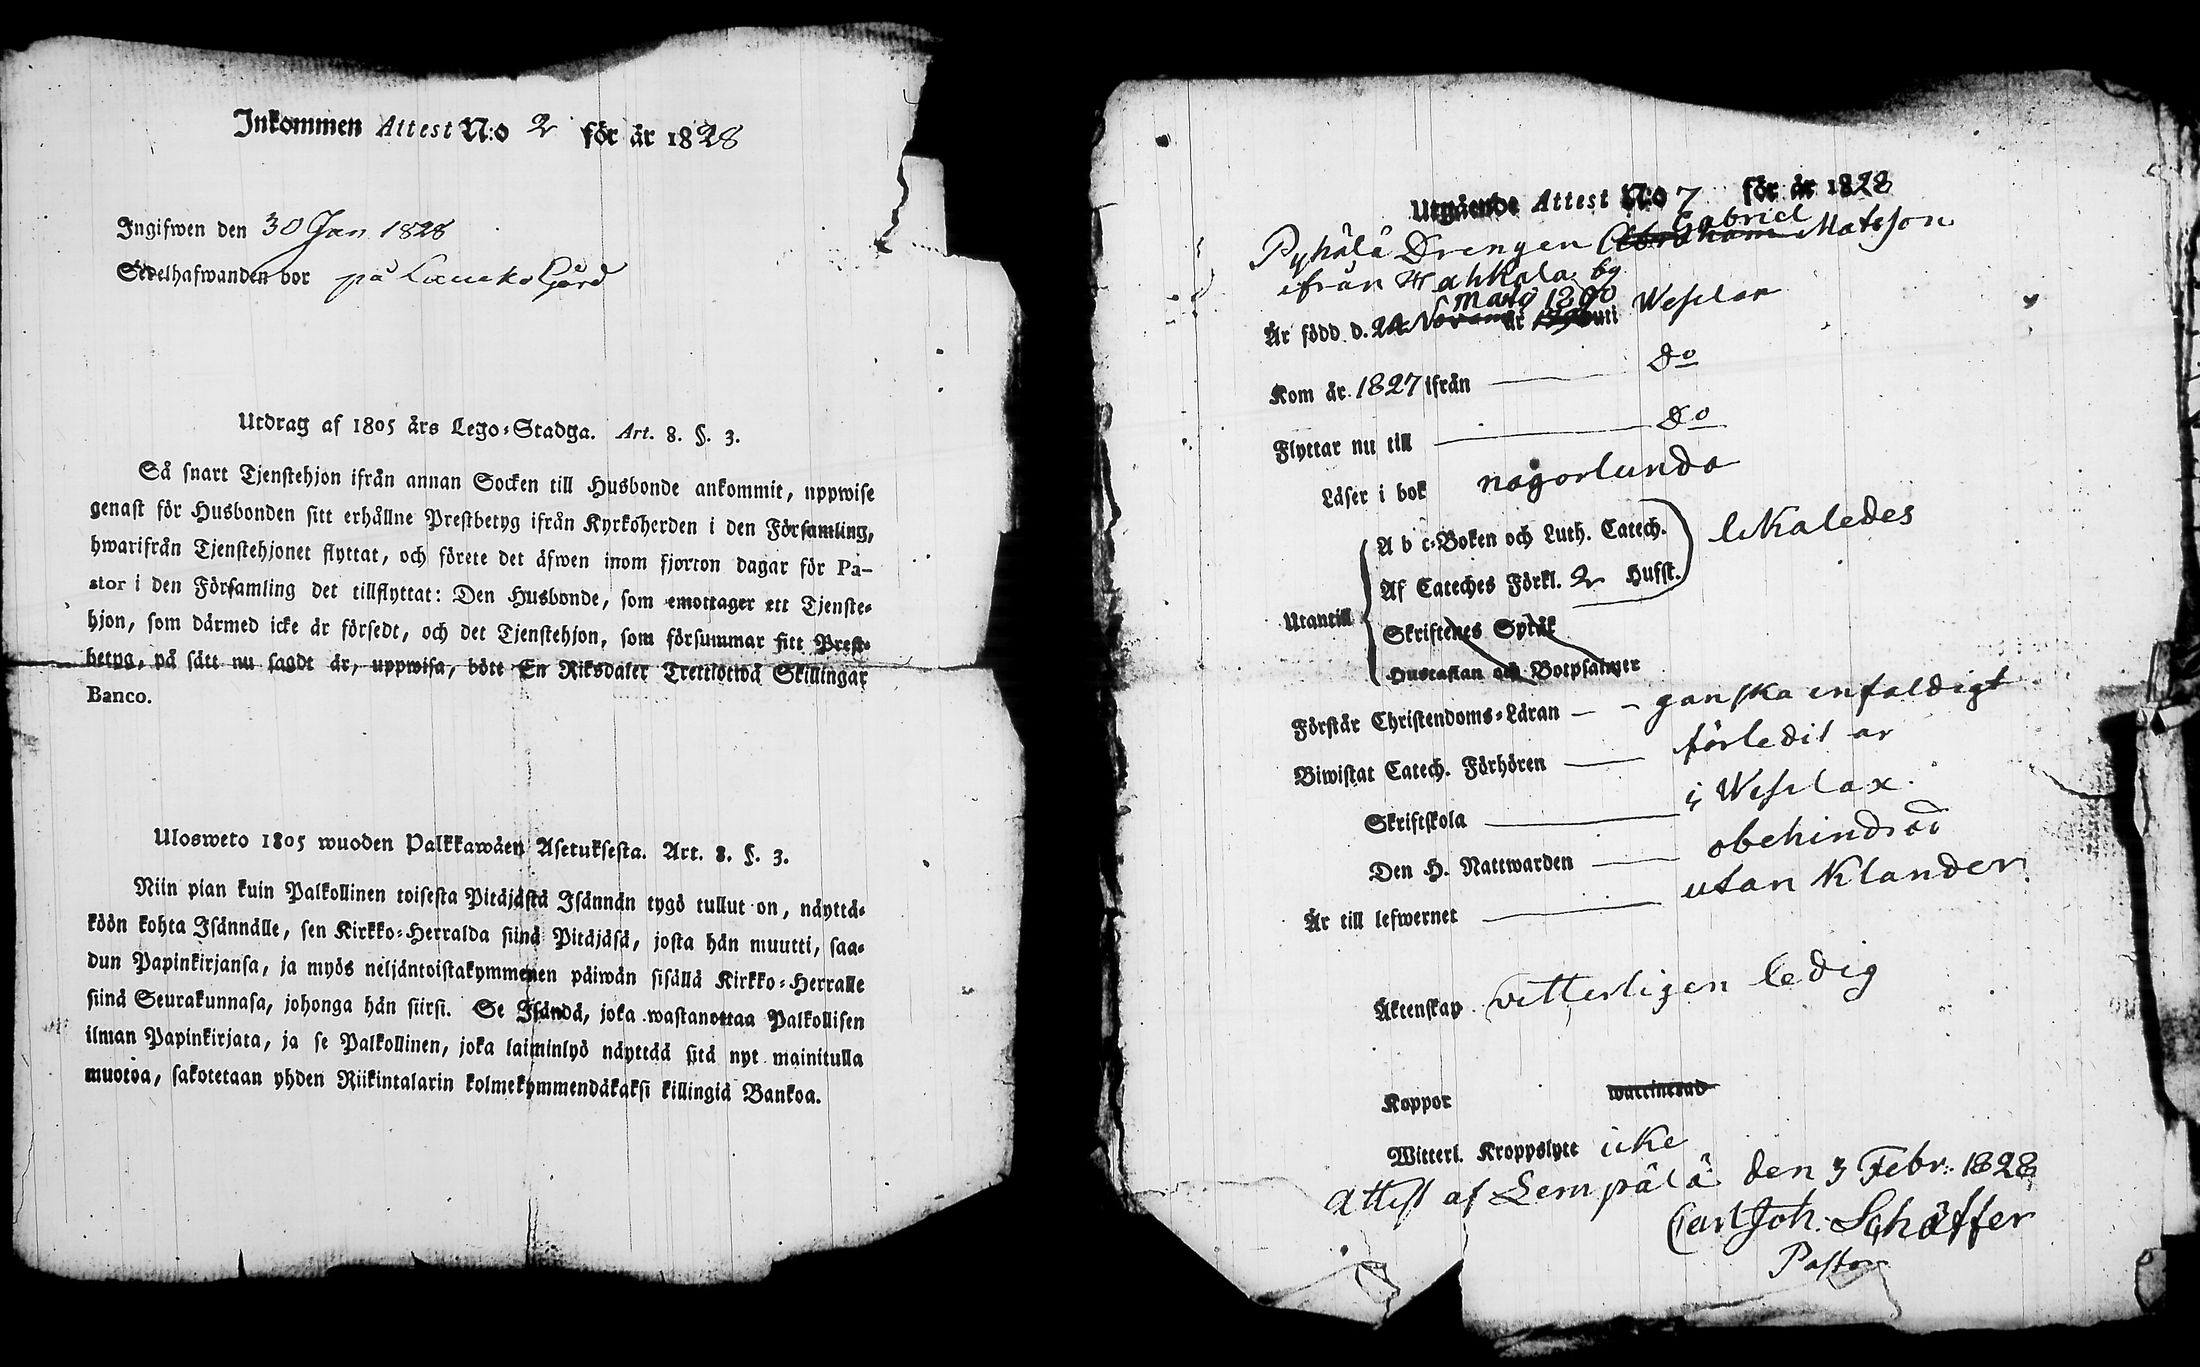 Inkommen Attest N:o 2 för år 1828
Ingifwen den 30 Jan 1828
Sedelhafwanden bor på Gård
Utdrag af 1805 års Lego-Stadga. Art. 8. §. 3.
Så snart Tjenstehjon ifrån annan Socken till Husbonde ankommit, uppwise
genast för Husbonden sitt erhållne Prestbetyg ifrån Kyrkoherden i den Församling,
hwarifrån Tjenstehjonet flyttat, och förete det äfwen inom fjorton dagar för Pa-
stor i den Församling det tillflyttat: Den Husbonde, som emottager ett Tjenste-
hjon, som därmed icke är försedt, och det Tjenstehjon, som försummar sitt Prest-
betyg, på sätt nu sagdt är, uppwisa, böte En Riksdaler Trettiotwå Skillingar
Banco.
Ulosweto 1805 wuoden Palkkawäen Asetuksesta. Art. 8. §. 3.
Niin pian kuin Palkollinen toisesta Pitäjästä Isännän tygö tullut on, näyttä-
köön kohta Isännälle, sen Kirkko-Herralda siinä Pitäjäsä, josta hän muutti, saa-
dun Papinkirjansa, ja myös neljäntoistakymmenen päiwän sisällä Kirkko-Herralle
siinä Seurakunnasa, johonga hän siirsi. Se Isändä, joka wastanottaa Palkollisen
ilman Papinkirjata, ja se Palkollinen, joka laiminlyö näyttää sitä nyt mainitulla
muotoa, sakotetaan yhden Riikintalarin kolmekymmendäkaksi killingiä Bankoa.
Utgående Attest N:o 7 för år 1828
Gabriel
Pyhälä Drengen Abraham Matsson
ifrån Wahkala by
Maij 1800
Är född d. 24 Novem år uti
Kom år 1827 ifrån — do
Flyttar nu till — do
Läser i bok någorlunda
Utantill
A b c-Boken och Luth. Catech.
likaledes
Af Cateches Förkl. 2 Hufst.
Skriftenes Språk
Hustaflan och Botpsalmer
Förstår Christendoms-Läran — - ganska enfaldigt
Biwistat Catech. Förhören — förledit år
Skriftskola — i
Den H. Nattwarden — obehindrad
Är till lefwernet — utan klander
Äktenskap vitterligen ledig
Koppor waccinerad
Witterl. Kroppslyte icke
Attest af Lempälä den 3 Febr: 1828
Carl Joh: Schäffer
Pastor